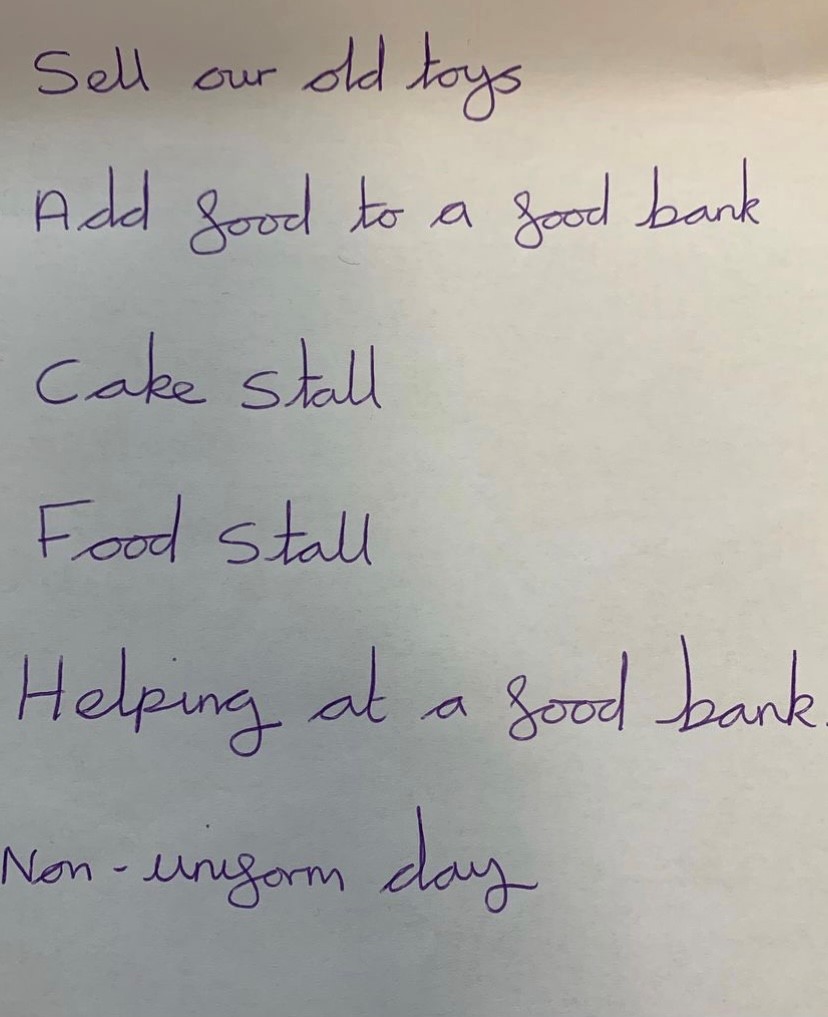 Sell our old toys
Add food to a food bank
Cake stall
Food stall
Helping at a food bank.
Non-uniform day